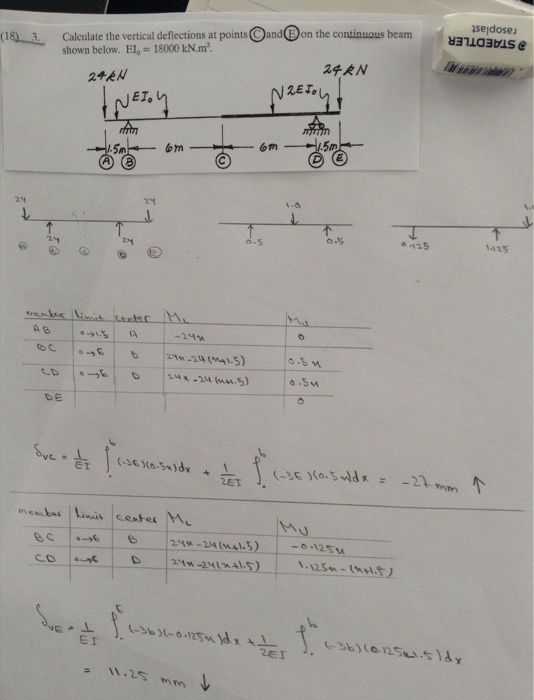 (18) 3. Calculate the vertical deflections at points C and E on the continuous beam
shown below. EI₀ = 18000 kN.m².
STAEDTLER
rasoplast
24 kN
24 kN
EI₀
2EI₀
1.5m 6m 6m 1.5m
A B C D E
24 24
24 24
1.0
0.5 0.5
0.125 1.125
member limit center M_L M_U
AB 0→1.5 A -24x 0
BC 0→6 B 24x-24(x+1.5) 0.5x
CD 0→6 D 24x-24(x+1.5) 0.5x
DE 0
δvc = 1/EI ∫₀⁶ (-36)(0.5x)dx + 1/2EI ∫₀⁶ (-36)(0.5x)dx = -27 mm ↑
member limit center M_L M_U
BC 0→6 B 24x-24(x+1.5) -0.125x
CD 0→6 D 24x-24(x+1.5) 1.125x-(x+1.5)
δVE = 1/EI ∫₀⁶ (-36)(-0.125x)dx + 1/2EI ∫₀⁶ (-36)(0.125x-1.5)dx
= 11.25 mm ↓